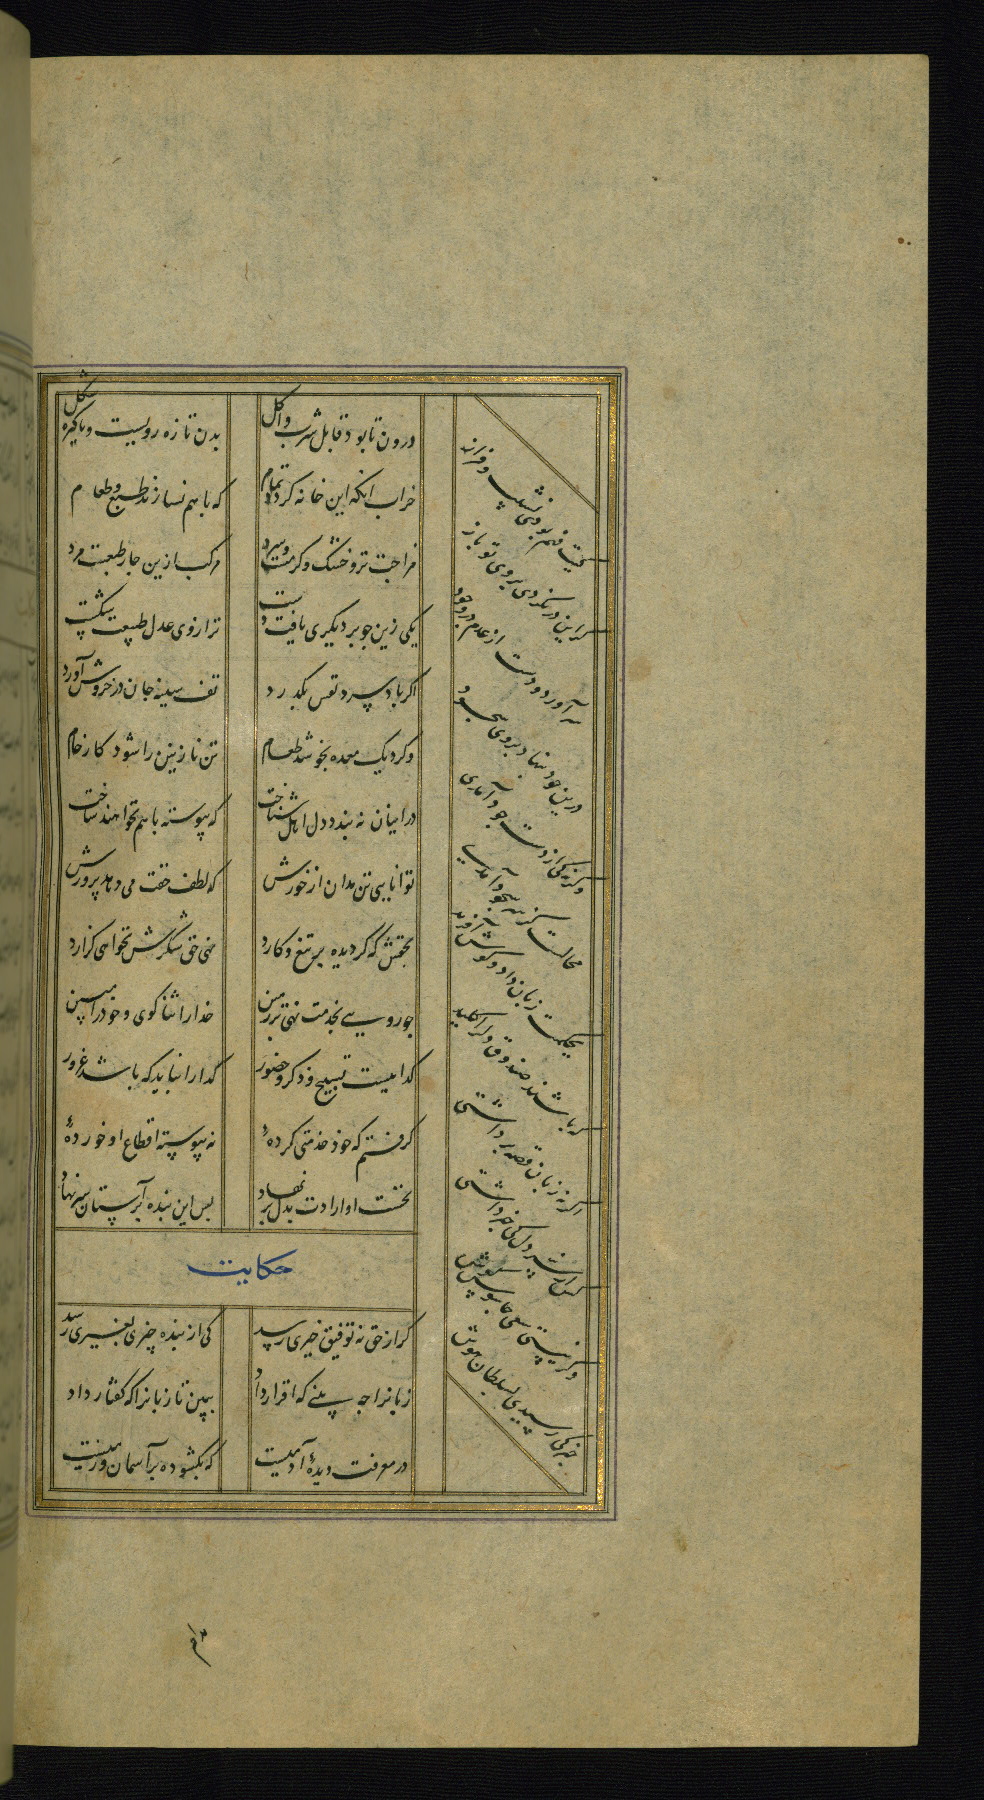 درون تا بود قابل شرب و اکل
بدن تازه رویست و پاکیزه شکل
خراب انکه این خانه کردد تمام
که با هم نسازند طبع و طعام
مزاجت تر و خشک و کرمست و سرد
مرکب ازین چار طبعست مرد
یکی زین چو بر دیکری یافت دست
ترازوی عدل طبیعت شکست
اکر باد سرد نفس نکذرد
تف سینه جان در خروش آورد
وکر دیک معده نجوشد طعام
تن نازنین را شود کار خام
درانیان نه بندد دل اهل شناخت
که پیوسته با هم نخواهند ساخت
توانایی تن مدان از خورش
که لطف حقت می دهد پرورش
بحقش که کر دیده بر تیغ و کارد
نهی حق شکرش نخواهی کزارد
چو رویی بخدمت نهی بر زمین
خدا را ثنا کوی و خود را مبین
کداییست تسبیح و ذکر و حضور
کدا را نباید که باشد غرور
کرفتم که خود خدمتی کرده
نه پیوسته اقطاع او خورده
نخست او ارادت بدل بر نهاد
پس این بنده بر آستان سر نهاد
حکایت
کر از حق نه توفیق خیری رسد
کی از بنده چیزی بغیری رسد
زبانرا چه بینی که اقرار داد
ببین تا زبانرا که کفتار داد
در معرفت دیدهٔ آدمیست
که بکشوده بر آسمان و زمیست
کیت فهم بودی نشیب و فراز
کر این در نکردی بروی تو باز
سر آورد و دست از عدم در وجود
درین جود بنهاد و در وی سجود
وکرنه کی از دست جود آمدی
محالست کز سر سجود آمدی
بحکمت زبان داد و کوش آفرید
که باشند صندوق دل را کلید
اکر نه زبان قصه برداشتی
کس از سر دل کی خبر داشتی
وکر نیستی سعی جاسوس کوش
خبر کی رسیدی بسلطان هوش